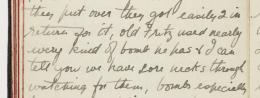 they put over they got easily 2 in
return for it, old Fritz used nearly
every kind of bomb he has & I can
tell you we have sore necks through
watching for them, bombs especially